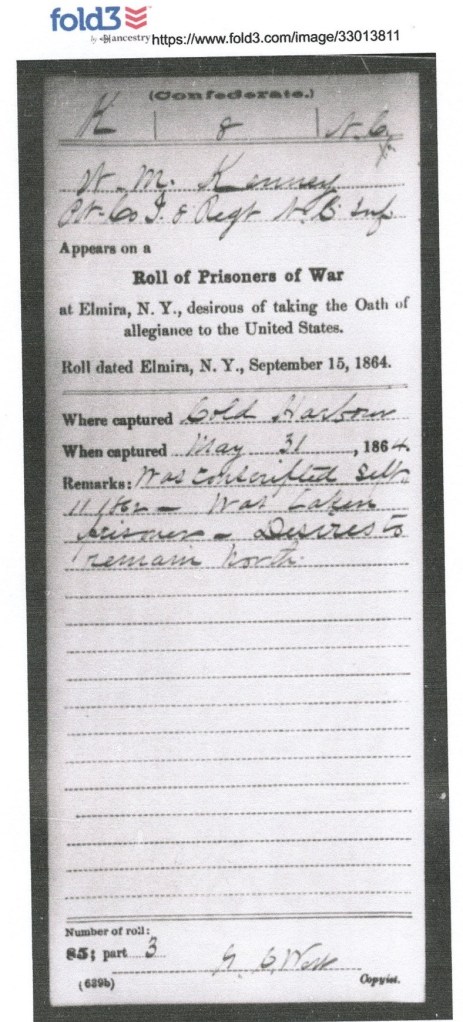 fold3
by ancestry https://www.fold3.com/image/33013811
(Confederate.)
K | 8 | N.C.
W. M. Kenney
Pvt Co I. 8 Regt N. C. Inf
Appears on a
Roll of Prisoners of War
at Elmira, N. Y., desirous of taking the Oath of
allegiance to the United States.
Roll dated Elmira, N. Y., September 15, 1864.
Where captured Cold Harbour
When captured May 31, 1864.
Remarks: Was conscripted Sept.
11/62 – Was taken
prisoner – Desires to
remain North.
Number of roll:
85; part 3
(639b) Copyist.